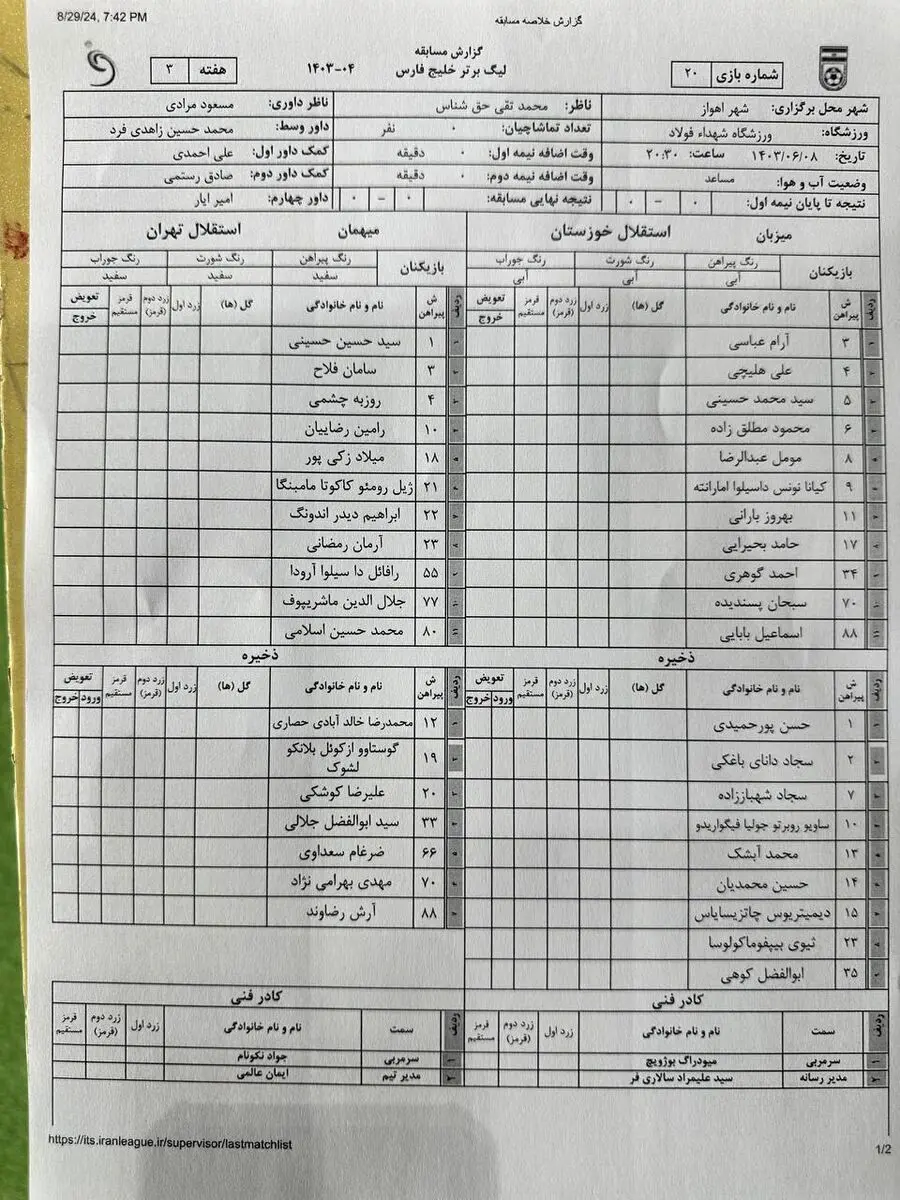 8/29/24, 7:42 PM
گزارش خلاصه مسابقه
گزارش مسابقه
لیگ برتر خلیج فارس ۰۴-۱۴۰۳
شماره بازی ۲۰
هفته ۳
شهر محل برگزاری: شهر اهواز
ناظر: محمد تقی حق شناس
ناظر داوری: مسعود مرادی
ورزشگاه: ورزشگاه شهداء فولاد
تعداد تماشاچیان: ۰ نفر
داور وسط: محمد حسین زاهدی فرد
تاریخ: ۱۴۰۳/۰۶/۰۸ ساعت: ۲۰:۳۰
وقت اضافه نیمه اول: ۰ دقیقه
کمک داور اول: علی احمدی
وضعیت آب و هوا: مساعد
وقت اضافه نیمه دوم: ۰ دقیقه
کمک داور دوم: صادق رستمی
نتیجه تا پایان نیمه اول: ۰ – ۰
نتیجه نهایی مسابقه: ۰ – ۰
داور چهارم: امیر ایار
میزبان استقلال خوزستان
بازیکنان رنگ پیراهن رنگ شورت رنگ جوراب
آبی آبی آبی
ردیف ش پیراهن نام و نام خانوادگی گل (ها) زرد اول زرد دوم (قرمز) قرمز مستقیم تعویض خروج
۳ آرام عباسی
۴ علی هلیچی
۵ سید محمد حسینی
۶ محمود مطلق زاده
۸ مومل عبدالرضا
۹ کیانا نونس داسیلوا امارانته
۱۱ بهروز بارانی
۱۷ حامد بحیرایی
۳۴ احمد گوهری
۷۰ سبحان پسندیده
۸۸ اسماعیل بابایی
ذخیره
ردیف ش پیراهن نام و نام خانوادگی گل (ها) زرد اول زرد دوم (قرمز) قرمز مستقیم تعویض ورود خروج
۱ حسن پورحمیدی
۲ سجاد دانای باغکی
۷ سجاد شهباززاده
۱۰ ساویو روبرتو جولیا فیگواریدو
۱۳ محمد آبشک
۱۴ حسین محمدیان
۱۵ دیمیتریوس چاتزیسایاس
۲۳ ثیوی بیپفوماکولوسا
۳۵ ابوالفضل کوهی
کادر فنی
ردیف سمت نام و نام خانوادگی زرد اول زرد دوم (قرمز) قرمز مستقیم
۱ سرمربی میودراگ بوژویچ
۲ مدیر رسانه سید علیمراد سالاری فر
میهمان استقلال تهران
بازیکنان رنگ پیراهن رنگ شورت رنگ جوراب
سفید سفید سفید
ردیف ش پیراهن نام و نام خانوادگی گل (ها) زرد اول زرد دوم (قرمز) قرمز مستقیم تعویض خروج
۱ سید حسین حسینی
۳ سامان فلاح
۴ روزبه چشمی
۱۰ رامین رضاییان
۱۸ میلاد زکی پور
۲۱ ژیل رومئو کاکوتا مامبنگا
۲۲ ابراهیم دیدر اندونگ
۲۳ آرمان رمضانی
۵۵ رافائل دا سیلوا آرودا
۷۷ جلال الدین ماشریپوف
۸۰ محمد حسین اسلامی
ذخیره
ردیف ش پیراهن نام و نام خانوادگی گل (ها) زرد اول زرد دوم (قرمز) قرمز مستقیم تعویض ورود خروج
۱۲ محمدرضا خالد آبادی حصاری
۱۹ گوستاوو ازکوئل بلانکو
لشوک
۲۰ علیرضا کوشکی
۳۳ سید ابوالفضل جلالی
۶۶ ضرغام سعداوی
۷۰ مهدی بهرامی نژاد
۸۸ آرش رضاوند
کادر فنی
ردیف سمت نام و نام خانوادگی زرد اول زرد دوم (قرمز) قرمز مستقیم
۱ سرمربی جواد نکونام
۲ مدیر تیم ایمان عالمی
https://its.iranleague.ir/supervisor/lastmatchlist
1/2